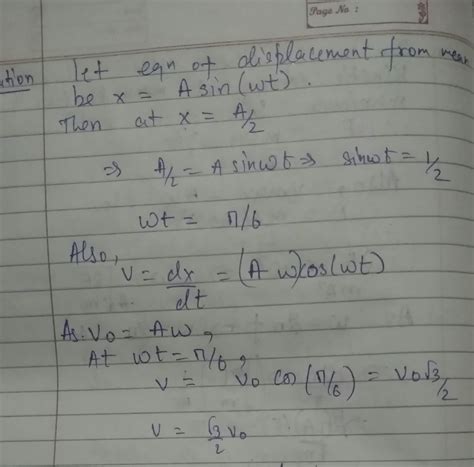 Page No. :
ution let eqn of displacement from mean
be x = A sin(wt).
Then at x = A/2
⇒ A/2 = A sinwt ⇒ sinwt = 1/2
wt = π/6
Also,
v = dx/dt = (A w)cos(wt)
As v0 = Aw,
At wt = π/6,
v = v0 cos(π/6) = v0√3/2
v = √3/2 v0